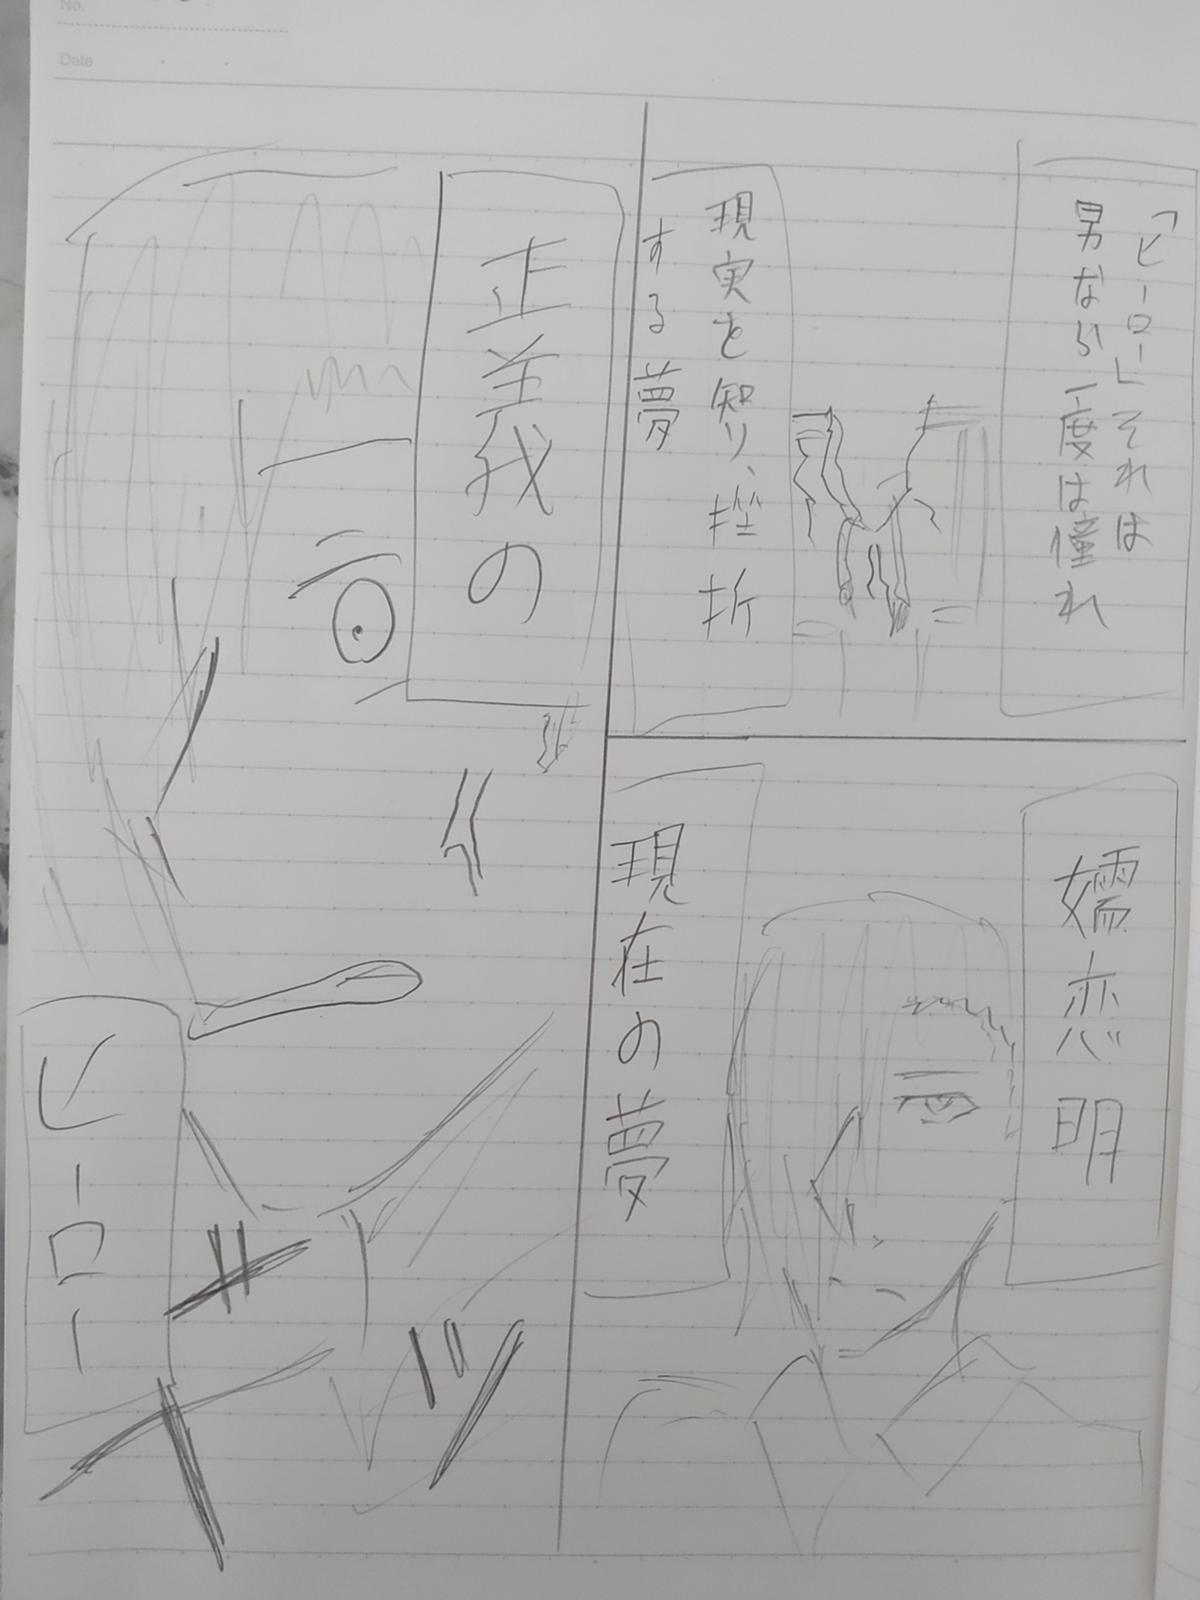 No.
Date
「ヒーロー」それは
男なら一度は憧れ
現実を知り、挫折
する夢
嬬恋明
現在の夢
正義の
ヒーロー
ギャッ